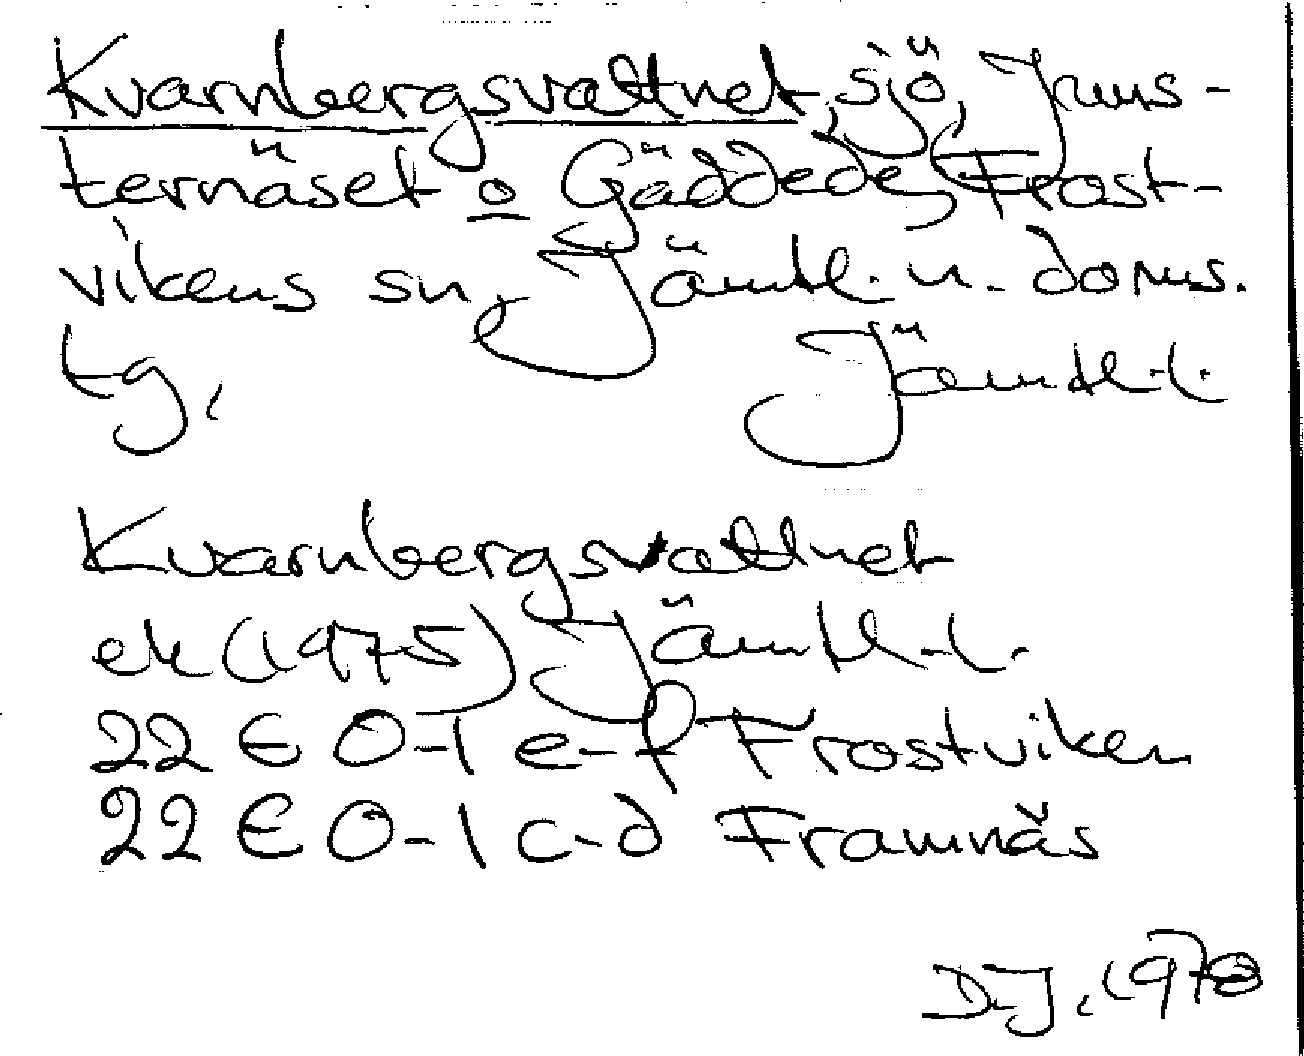 Kvarnbergsvattnet, sjö, Jums-
ternäset o Gäddede, Frost-
vikens sn, Jämtl. n. doms.
tg,
Jämtl.l.
Kvarnbergsvattnet
ek (1975) Jämtl.l.
22 E 0-1 e-f Frostviken
22 E 0-1 c-d Framnäs
D.J. 1978